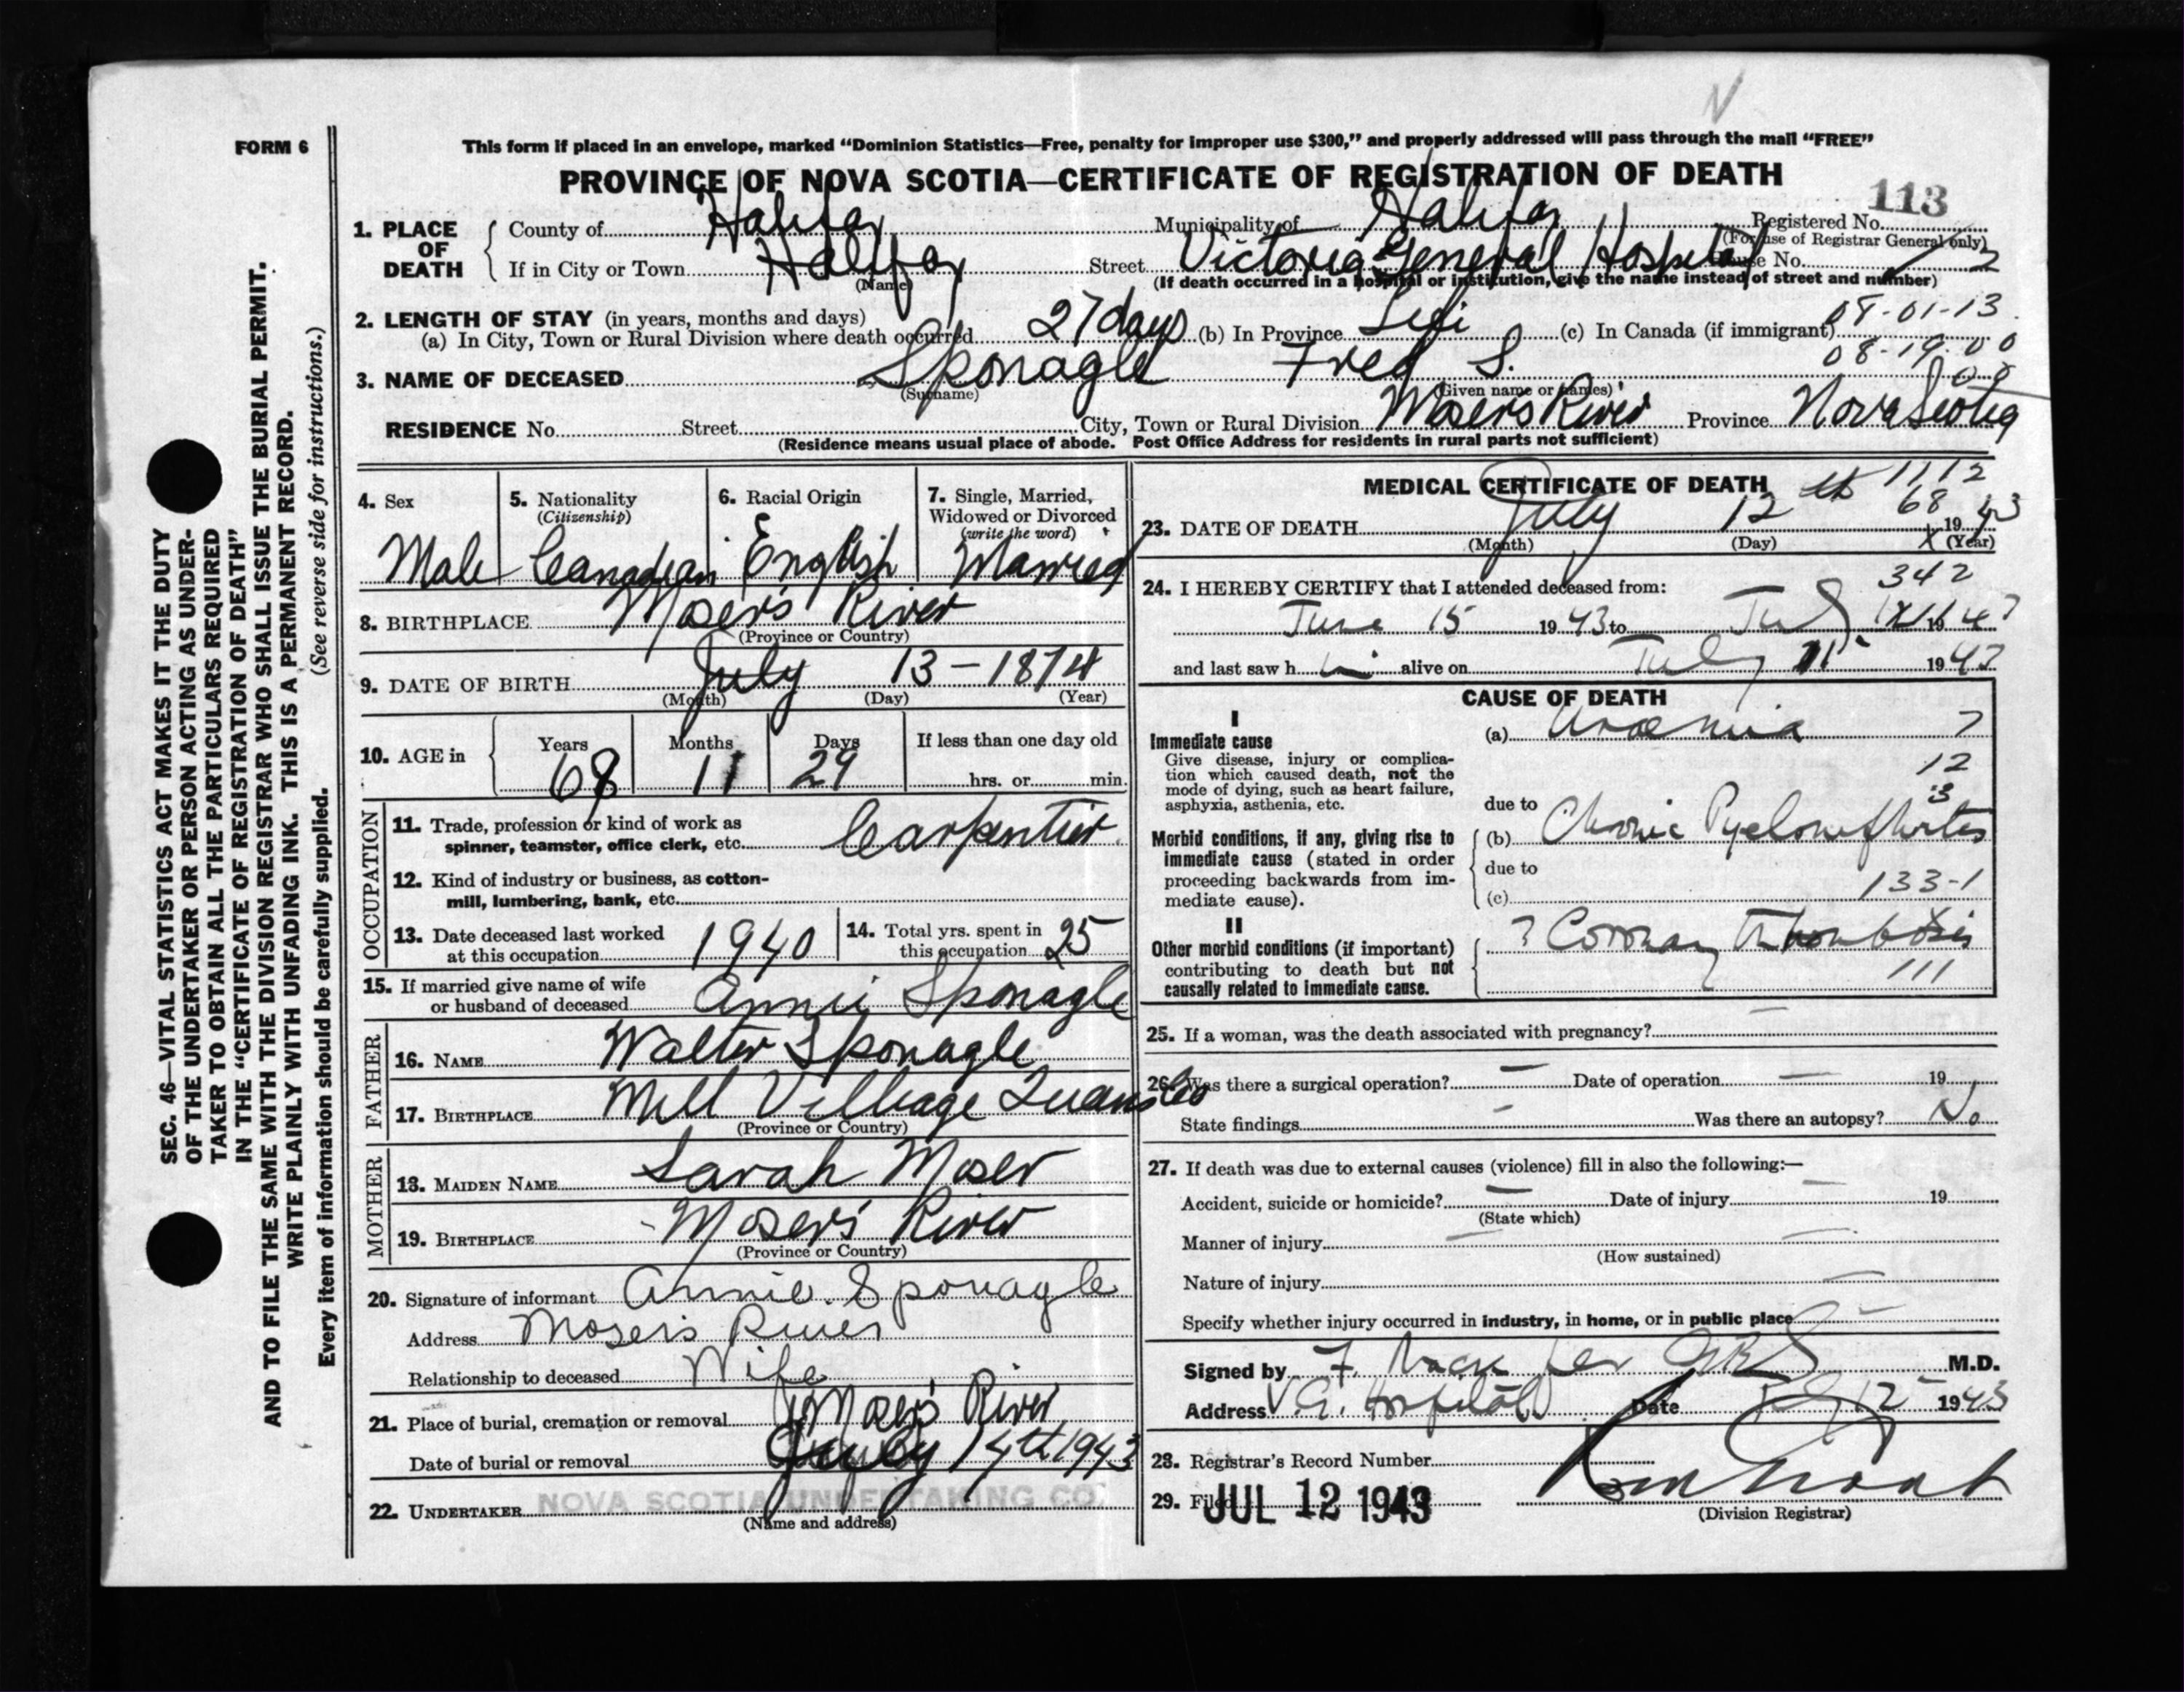 N
FORM 6
This form if placed in an envelope, marked “Dominion Statistics—Free, penalty for improper use $300,” and properly addressed will pass through the mail “FREE”
PROVINCE OF NOVA SCOTIA—CERTIFICATE OF REGISTRATION OF DEATH
113
1. PLACE OF DEATH County of Halifax Municipality of Halifax Registered No.
(For use of Registrar General only)
If in City or Town Halifax Street Victoria General Hospital House No. 2
(Name) (If death occurred in a hospital or institution, give the name instead of street and number)
2. LENGTH OF STAY (in years, months and days) 08-01-13
(a) In City, Town or Rural Division where death occurred 27 days (b) In Province Life (c) In Canada (if immigrant)
08-19-00
3. NAME OF DECEASED Sponagle Fred S. 00
(Surname) (Given name or names)
RESIDENCE No. Street City, Town or Rural Division Mosers River Province Nova Scotia
(Residence means usual place of abode. Post Office Address for residents in rural parts not sufficient)
4. Sex 5. Nationality 6. Racial Origin 7. Single, Married,
(Citizenship) Widowed or Divorced
(write the word)
Male Canadian English Married
8. BIRTHPLACE Moser's River
(Province or Country)
9. DATE OF BIRTH July 13 - 1874
(Month) (Day) (Year)
10. AGE in Years Months Days If less than one day old
68 11 29 hrs. or min.
OCCUPATION
11. Trade, profession or kind of work as
spinner, teamster, office clerk, etc. Carpentier
12. Kind of industry or business, as cotton-
mill, lumbering, bank, etc.
13. Date deceased last worked
at this occupation 1940
14. Total yrs. spent in
this occupation 25
15. If married give name of wife
or husband of deceased Annie Sponagle
FATHER
16. NAME Walter Sponagle
17. BIRTHPLACE Mill Village
(Province or Country)
MOTHER
18. MAIDEN NAME Sarah Moser
19. BIRTHPLACE Moser's River
(Province or Country)
20. Signature of informant Annie Sponagle
Address Moser's River
Relationship to deceased Wife
21. Place of burial, cremation or removal Moser's River
Date of burial or removal July 14th 1943
22. UNDERTAKER NOVA SCOTIA UNDERTAKING CO.
(Name and address)
MEDICAL CERTIFICATE OF DEATH 1112
68
23. DATE OF DEATH July 12th 1943
(Month) (Day) (Year)
X
342
24. I HEREBY CERTIFY that I attended deceased from:
June 15 1943 to July 19
and last saw h alive on July 11 1943
CAUSE OF DEATH
I
Immediate cause (a) Uraemia 7
Give disease, injury or complica-
tion which caused death, not the 12
mode of dying, such as heart failure,
asphyxia, asthenia, etc. due to 3
Morbid conditions, if any, giving rise to (b) Chronic Pyelonephritis
immediate cause (stated in order due to
proceeding backwards from im- 133-1
mediate cause). (c)
II
Other morbid conditions (if important) ? Coronary Thrombosis
contributing to death but not 111
causally related to immediate cause.
25. If a woman, was the death associated with pregnancy? —
26. Was there a surgical operation? — Date of operation — 19
State findings — Was there an autopsy? No
27. If death was due to external causes (violence) fill in also the following:—
Accident, suicide or homicide? — Date of injury — 19
(State which)
Manner of injury —
(How sustained)
Nature of injury —
Specify whether injury occurred in industry, in home, or in public place —
Signed by F. Mack per M.D.
Address V.G. Hospital Date July 12 1943
28. Registrar's Record Number
29. Filed JUL 12 1943
(Division Registrar)
SEC. 46—VITAL STATISTICS ACT MAKES IT THE DUTY
OF THE UNDERTAKER OR PERSON ACTING AS UNDER-
TAKER TO OBTAIN ALL THE PARTICULARS REQUIRED
IN THE “CERTIFICATE OF REGISTRATION OF DEATH”
AND TO FILE THE SAME WITH THE DIVISION REGISTRAR WHO SHALL ISSUE THE BURIAL PERMIT.
WRITE PLAINLY WITH UNFADING INK. THIS IS A PERMANENT RECORD.
Every item of information should be carefully supplied. (See reverse side for instructions.)